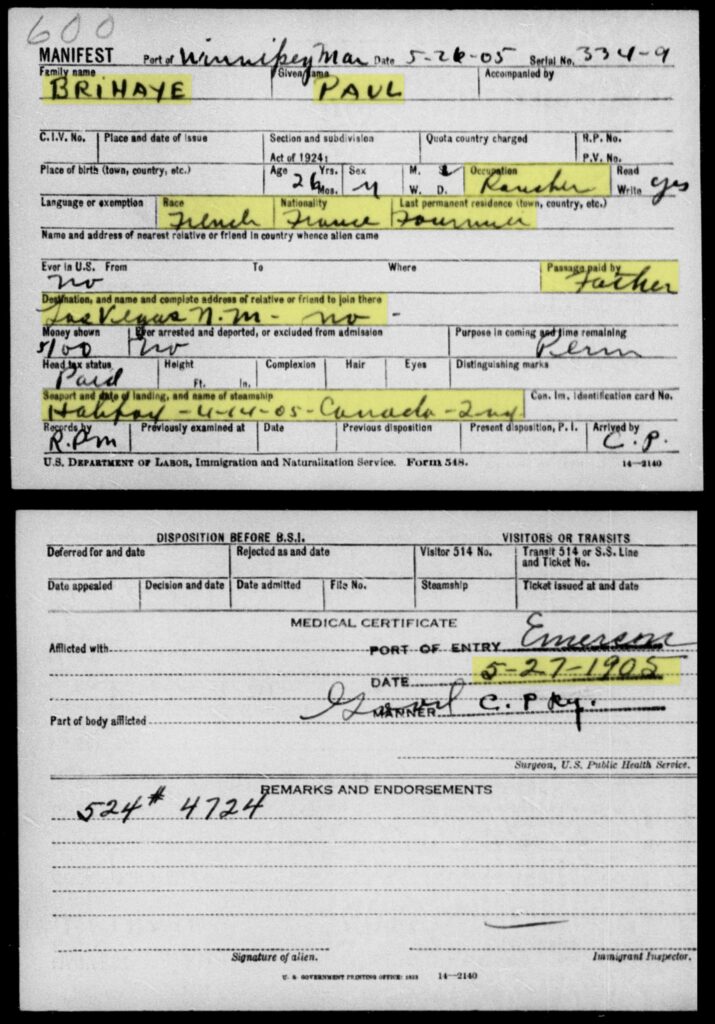 600
MANIFEST Port of Winnipeg Man Date 5-26-05 Serial No. 334-9
Family name Given name Accompanied by
BRIHAYE PAUL
C.I.V. No. Place and date of issue Section and subdivision Quota country charged R.P. No.
Act of 1924: P.V. No.
Place of birth (town, country, etc.) Age Yrs. Sex M. S. Occupation Read
26 Mos. M W. D. Rancher Write yes
Language or exemption Race Nationality Last permanent residence (town, country, etc.)
French France
Name and address of nearest relative or friend in country whence alien came
Ever in U.S. From To Where Passage paid by
no Father
Destination, and name and complete address of relative or friend to join there
Las Vegas N.M- no -
Money shown Ever arrested and deported, or excluded from admission Purpose in coming and time remaining
$100 no Perm
Head tax status Height Complexion Hair Eyes Distinguishing marks
Paid Ft. In.
Seaport and date of landing, and name of steamship Con. Im. Identification card No.
Halifax - 4-14-05 - Canada - 2nd
Records by Previously examined at Date Previous disposition Present disposition, P. I. Arrived by
R.Pm C.P.
U.S. DEPARTMENT OF LABOR, Immigration and Naturalization Service. Form 548. 14-2140
DISPOSITION BEFORE B.S.I. VISITORS OR TRANSITS
Deferred for and date Rejected as and date Visitor 514 No. Transit 514 or S.S. Line
and Ticket No.
Date appealed Decision and date Date admitted File No. Steamship Ticket issued at and date
MEDICAL CERTIFICATE
Afflicted with PORT OF ENTRY Emerson
DATE 5-27-1905
Part of body afflicted MANNER C. P Ry.
Surgeon, U.S. Public Health Service.
REMARKS AND ENDORSEMENTS
524# 4724
Signature of alien. Immigrant Inspector.
U. S. GOVERNMENT PRINTING OFFICE: 14-2140